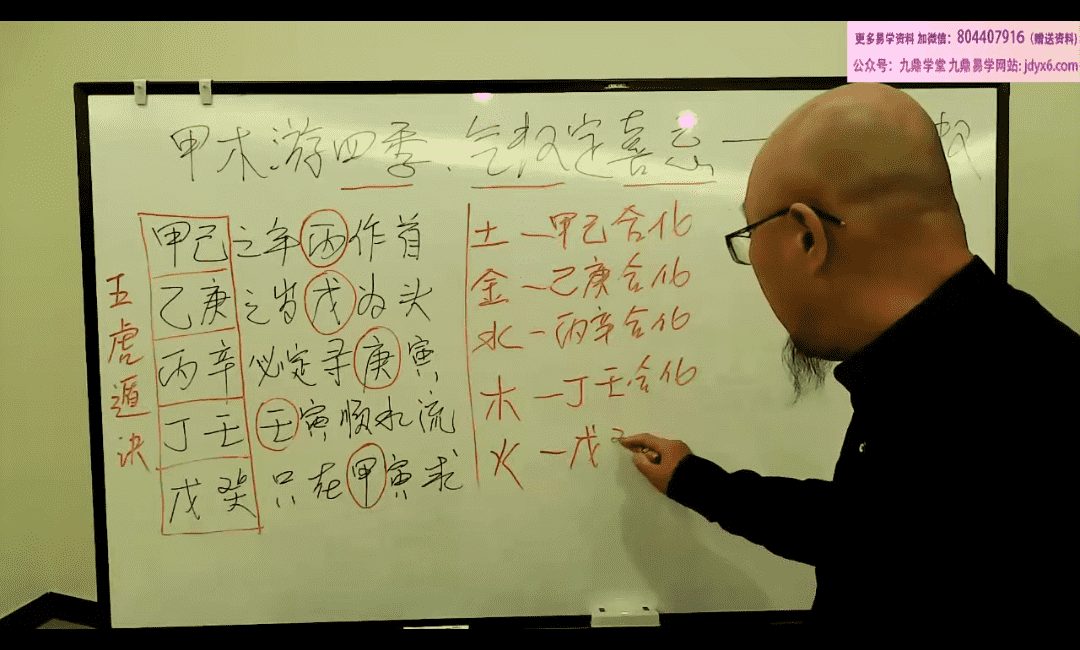 更多易学资料 加微信：804407916（赠送资料）
公众号：九鼎学堂 九鼎易学网站：jdyx6.com
甲木游四季、气权定喜忌一
五虎遁决
甲己之年丙作首
乙庚之岁戊为头
丙辛必定寻庚寅
丁壬壬寅顺水流
戊癸只在甲寅求
土—甲己合化
金—乙庚合化
水—丙辛合化
木—丁壬合化
火—戊